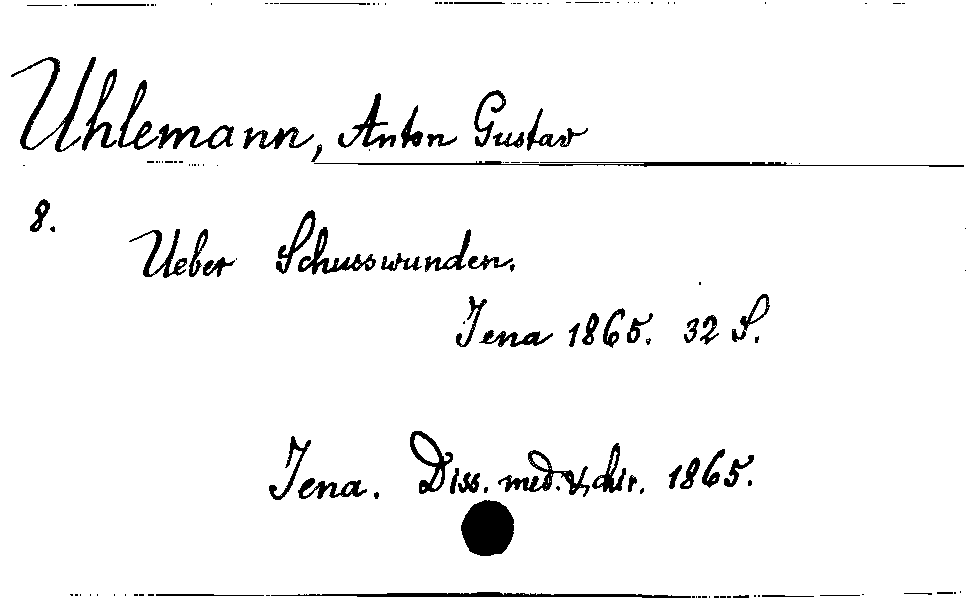 Uhlemann, Anton Gustav
8.
Ueber Schusswunden.
Jena 1865. 32 S.
Jena. Diss. med. & chir. 1865.